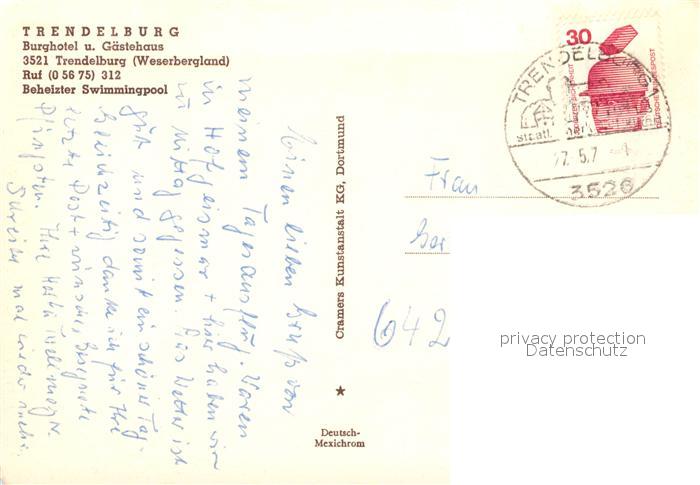 TRENDELBURG
Burghotel u. Gästehaus
3521 Trendelburg (Weserbergland)
Ruf (0 56 75) 312
Beheizter Swimmingpool
Einen lieben Gruß von
meinem Tagesausflug. Waren
in Hofgeismar + hier haben wir
zu Mittag gegessen. Das Wetter ist
gut und somit ein schöner Tag.
Gleichzeitig danke ich für Ihre
letzte Post + wünsche gesegnete
Pfingsten. Ihre
Schreiben mal wieder
Cramers Kunstanstalt KG, Dortmund
Deutsch-
Mexichrom
30
DEUTSCHE BUNDESPOST
TRENDELBURG 1
staatl.
3526
Frau
642
privacy protection
Datenschutz